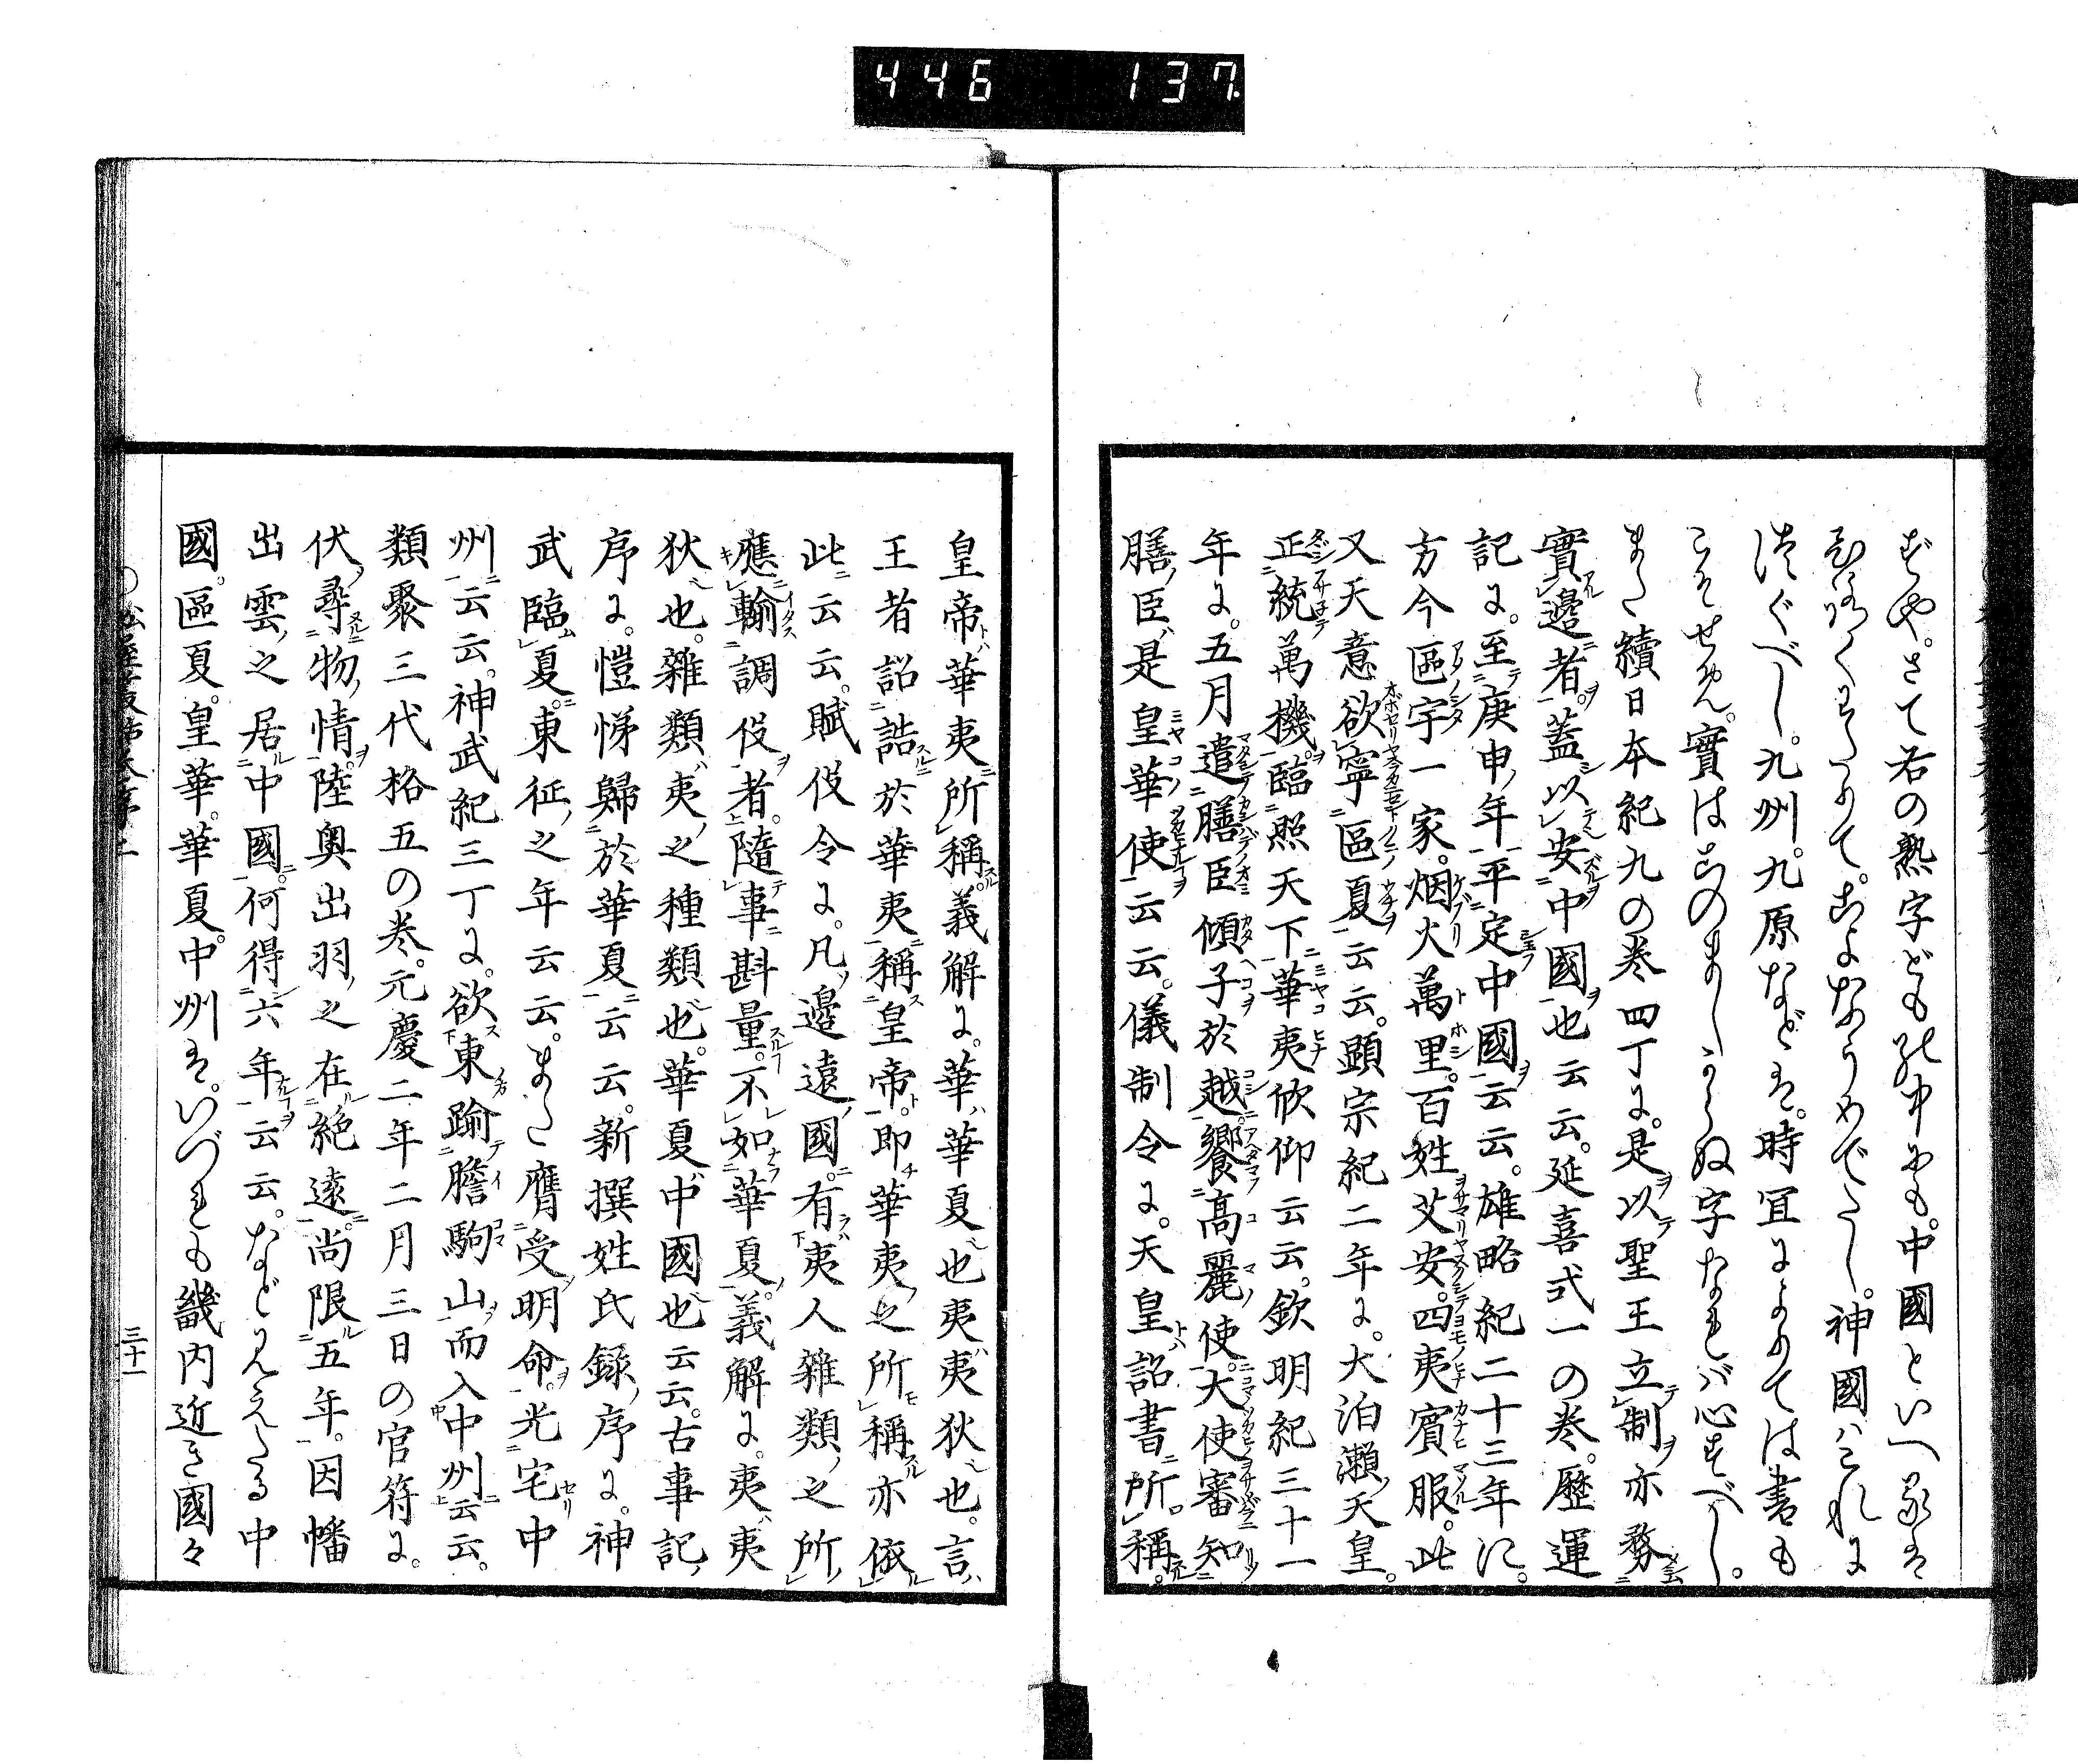 446 137.
ずや。さて右の熟字ども此中にも。中國といへるは
ひろくわたりて。ことなるうめでたし。神國はこれに
つぐべし。九州。九原などは。時宜によりては書も
こそせめ。實はこのましからぬ字なれば心すべし。
また續日本紀九の巻四丁に。是以聖王立制亦務
實邊者。蓋以安中國也云云。延喜式一の巻。歴運
記に。至庚申年平定中國云云。雄略紀二十三年に。
方今區宇一家。烟火萬里。百姓艾安。四夷賓服。此
又天意欲寧區夏云云。顕宗紀二年に。大泊瀬天皇。
正統萬機臨照天下華夷欣仰云云。欽明紀三十一
年に。五月遣膳臣傾子於越饗高麗使。大使審知
膳臣是皇華使云云。儀制令に。天皇詔書所稱。
皇帝華夷所稱。義解に。華華夏也夷夷狄也。言
王者詔誥於華夷稱皇帝。即華夷之所稱亦依
此云云。賦役令に。凡邊遠國。有夷人雜類之所
應輸調役者。隨事斟量。不如華夏。義解に。夷夷
狄也。雜類夷之種類也。華夏中國也云云。古事記
序に。愷悌歸於華夏云云。新撰姓氏録序に。神
武臨夏。東征之年云云。また膺受明命。光宅中
州云云。神武紀三丁に。欲東踰膽駒山而入中州云云。
類聚三代格五の巻。元慶二年二月三日の官符に。
伏尋物情。陸奥出羽之在絶遠。尚限五年。因幡
出雲之居中國。何得六年云云。などみえたる中
國。區夏。皇華。華夏。中州は。いづれも畿内近き國々
三十一